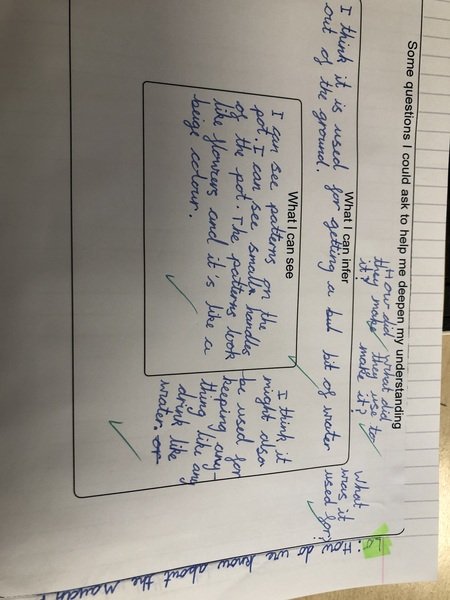 LO: How do we know about the mayan
Some questions I could ask to help me deepen my understanding
How did
they make
it?
What did
they use to
make it?
What
was it
used for?
What I can infer
I think it is used for getting a but bit of water
out of the ground.
What I can see
I can see patterns on the
pot. I can see small handles
of the pot. The patterns look
like flowrers and it's like a
beige colour.
I think it
might also
be used for
keeping any-
thing like any
drink like
water or